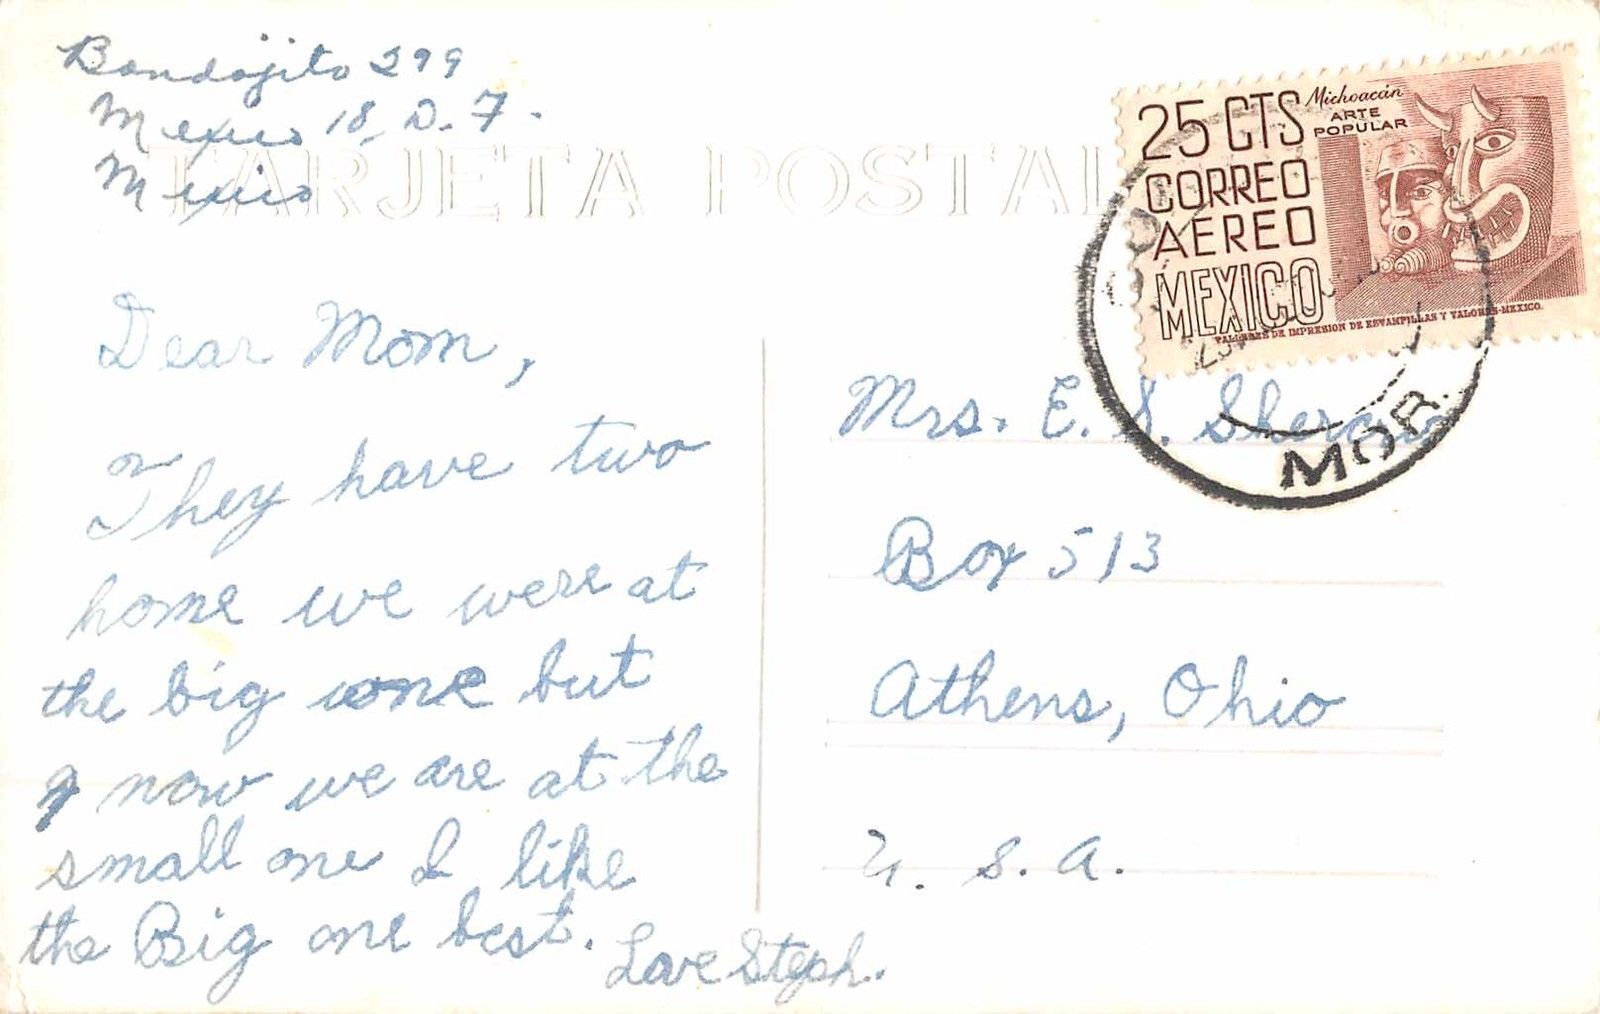 Bondojito 299
Mexico 18, D. F.
Mexico
TARJETA POSTAL
25 CTS
CORREO
AEREO
MEXICO
Michoacán
ARTE
POPULAR
TALLERES DE IMPRESION DE ESTAMPILLAS Y VALORES-MEXICO.
MOR.
Dear Mom,
They have two
home we were at
the big one but
now we are at the
small one I like
the Big one best.
Love Steph.
Mrs. E. S.
Box 513
Athens, Ohio
U. S. A.